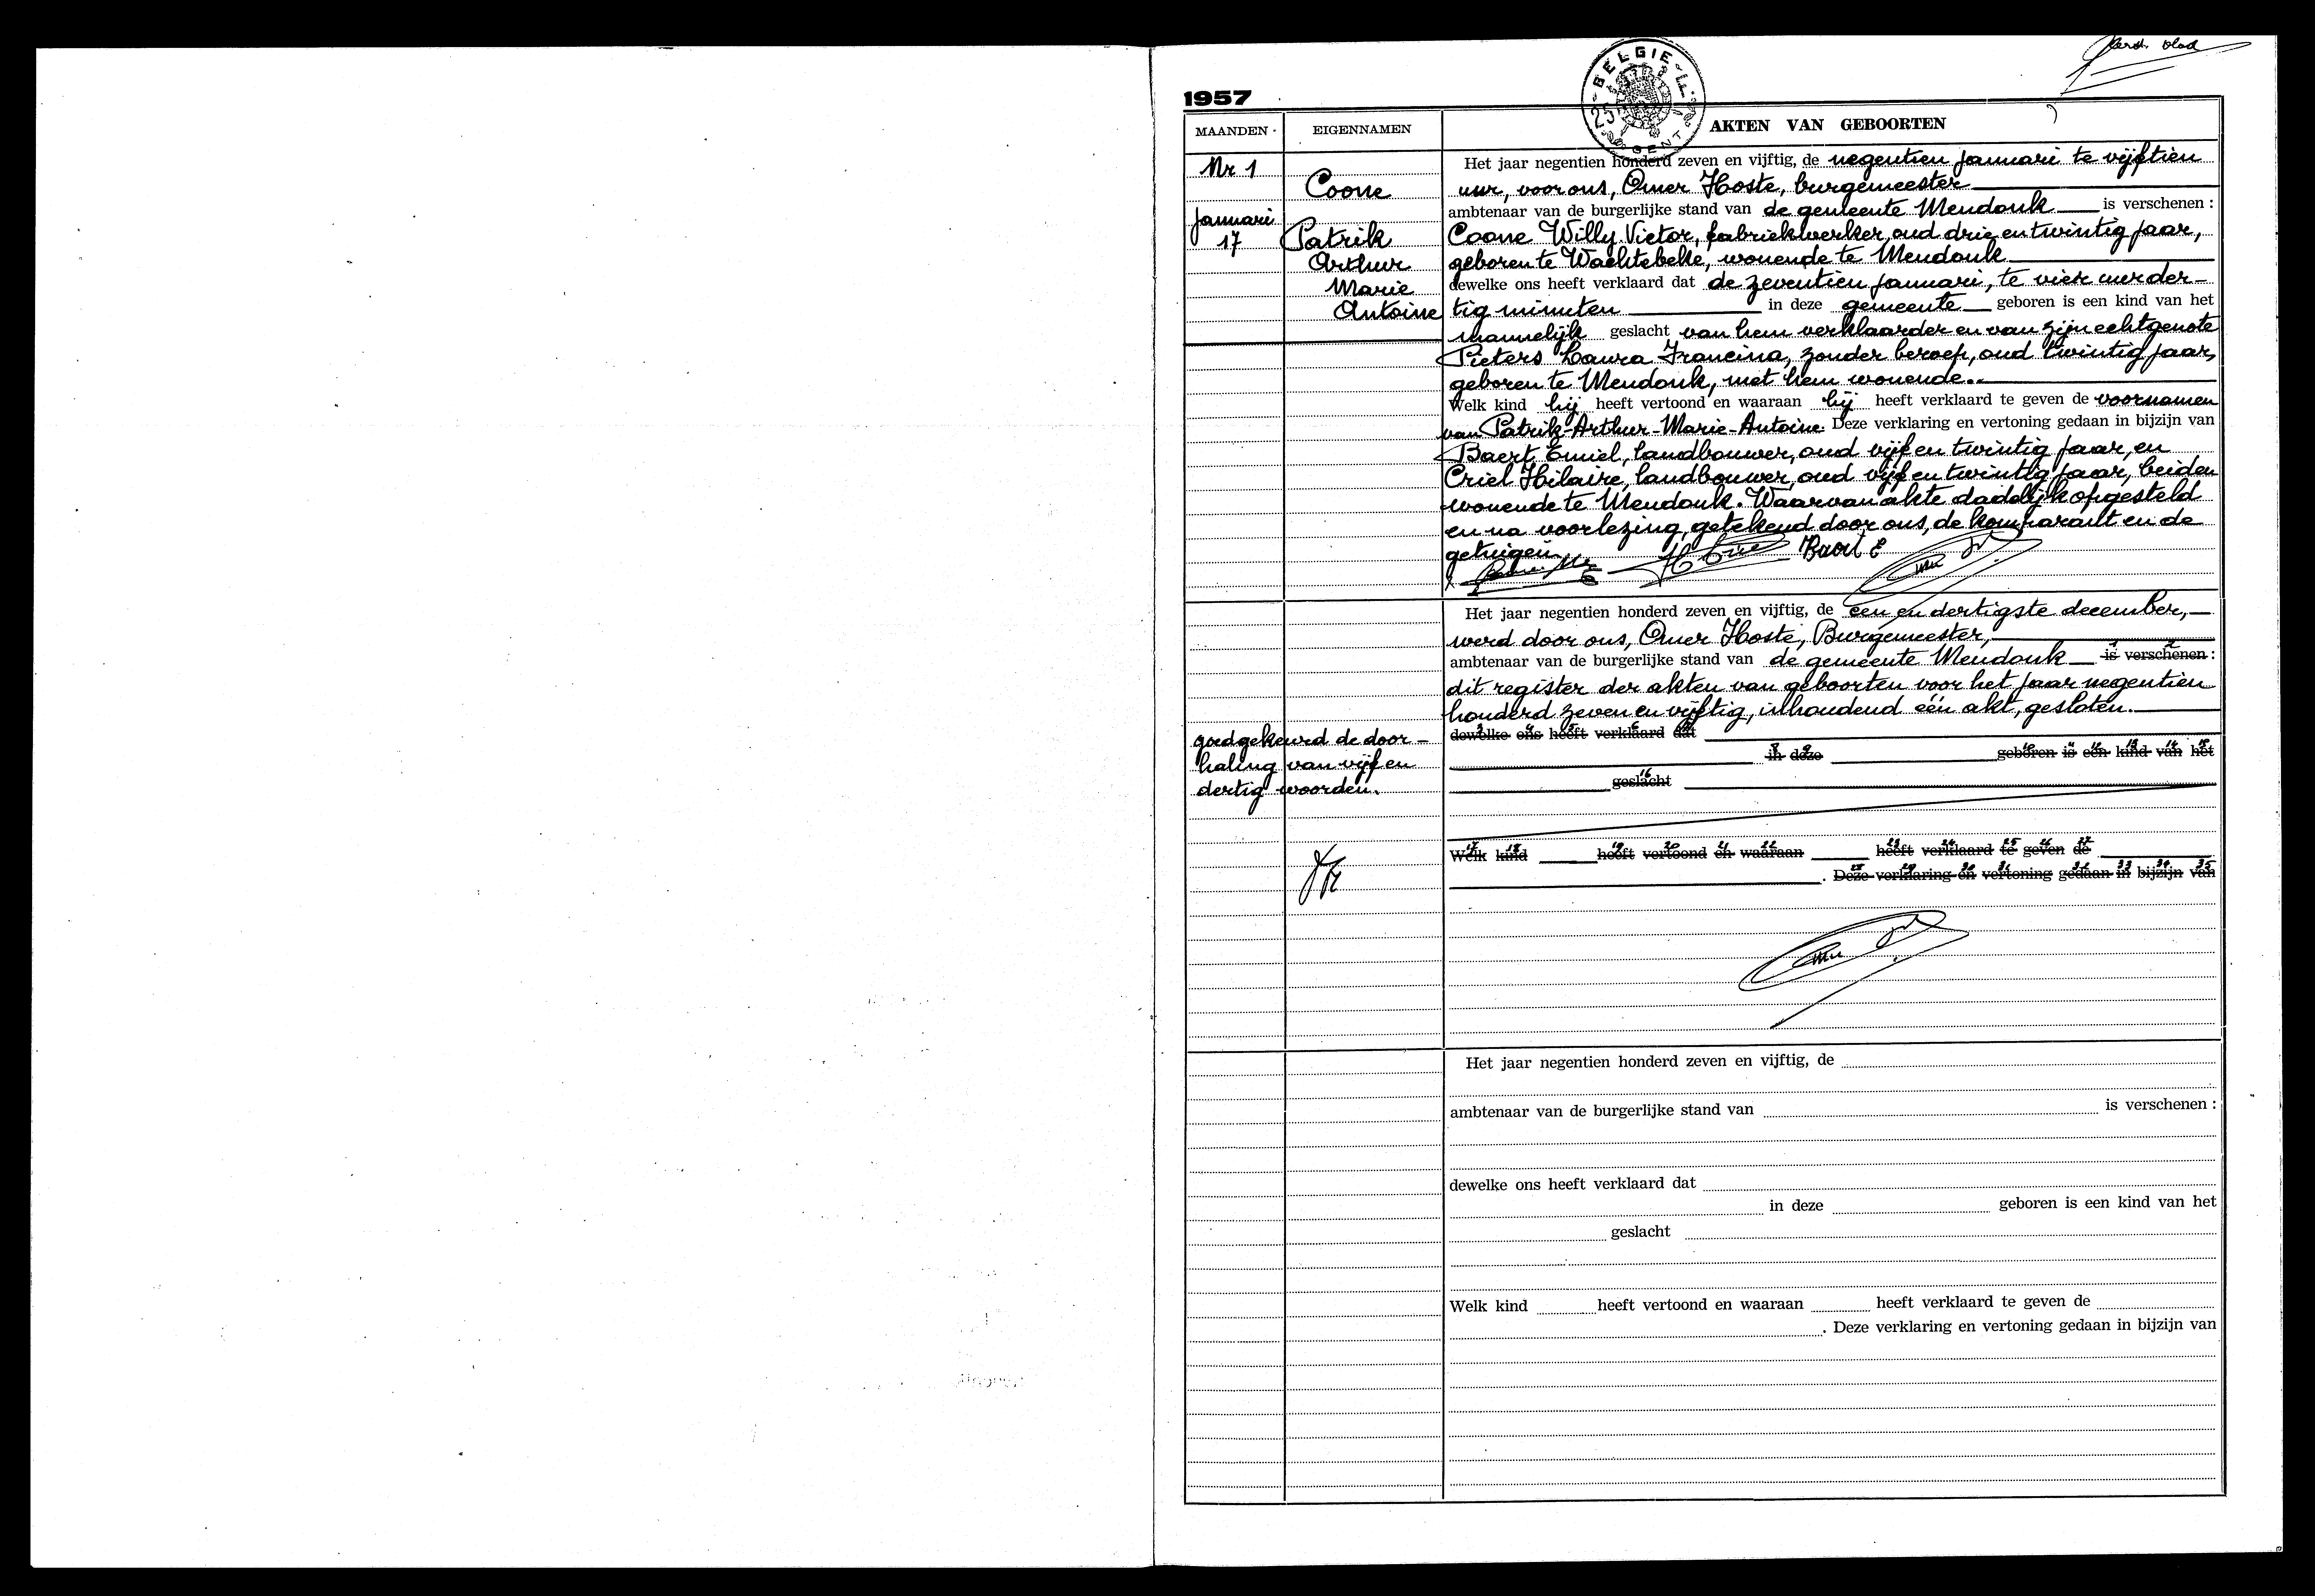 eerste blad
1957
BELGIE 25 F. GENT
MAANDEN EIGENNAMEN AKTEN VAN GEBOORTEN
Nr 1
Januari
17
Coone
Patrik
Arthur
Marie
Antoine
Het jaar negentien honderd zeven en vijftig, de negentien januari te vijftien
uur, voor ons, Omer Hoste, burgemeester
ambtenaar van de burgerlijke stand van de gemeente Mendonk is verschenen :
Coone Willy Victor, fabriekwerker, oud drie en twintig jaar,
geboren te Wachtebeke, wonende te Mendonk
dewelke ons heeft verklaard dat de zeventien januari, te vier uur der-
tig minuten in deze gemeente geboren is een kind van het
mannelijk geslacht van hem verklaarder en van zijn echtgenote
Pieters Laura Francina, zonder beroep, oud twintig jaar,
geboren te Mendonk, met hem wonende.
Welk kind hij heeft vertoond en waaraan hij heeft verklaard te geven de voornamen
van Patrik-Arthur-Marie-Antoine. Deze verklaring en vertoning gedaan in bijzijn van
Baert Emiel, landbouwer, oud vijf en twintig jaar, en
Criel Hilaire, landbouwer, oud vijf en twintig jaar, beiden
wonende te Mendonk. Waarvan akte dadelijk opgesteld
en na voorlezing, getekend door ons, de komparant en de
getuigen.
Baert E
Het jaar negentien honderd zeven en vijftig, de een en dertigste december,
werd door ons, Omer Hoste, Burgemeester,
ambtenaar van de burgerlijke stand van de gemeente Mendonk is verschenen :
dit register der akten van geboorten voor het jaar negentien
honderd zeven en vijftig, inhoudend één akt, gesloten.
goedgekeurd de door-
haling van vijf en
dertig woorden.
dewelke ons heeft verklaard dat
in deze geboren is een kind van het
geslacht
Welk kind heeft vertoond en waaraan heeft verklaard te geven de
. Deze verklaring en vertoning gedaan in bijzijn van
Het jaar negentien honderd zeven en vijftig, de
ambtenaar van de burgerlijke stand van is verschenen :
dewelke ons heeft verklaard dat
in deze geboren is een kind van het
geslacht
Welk kind heeft vertoond en waaraan heeft verklaard te geven de
. Deze verklaring en vertoning gedaan in bijzijn van